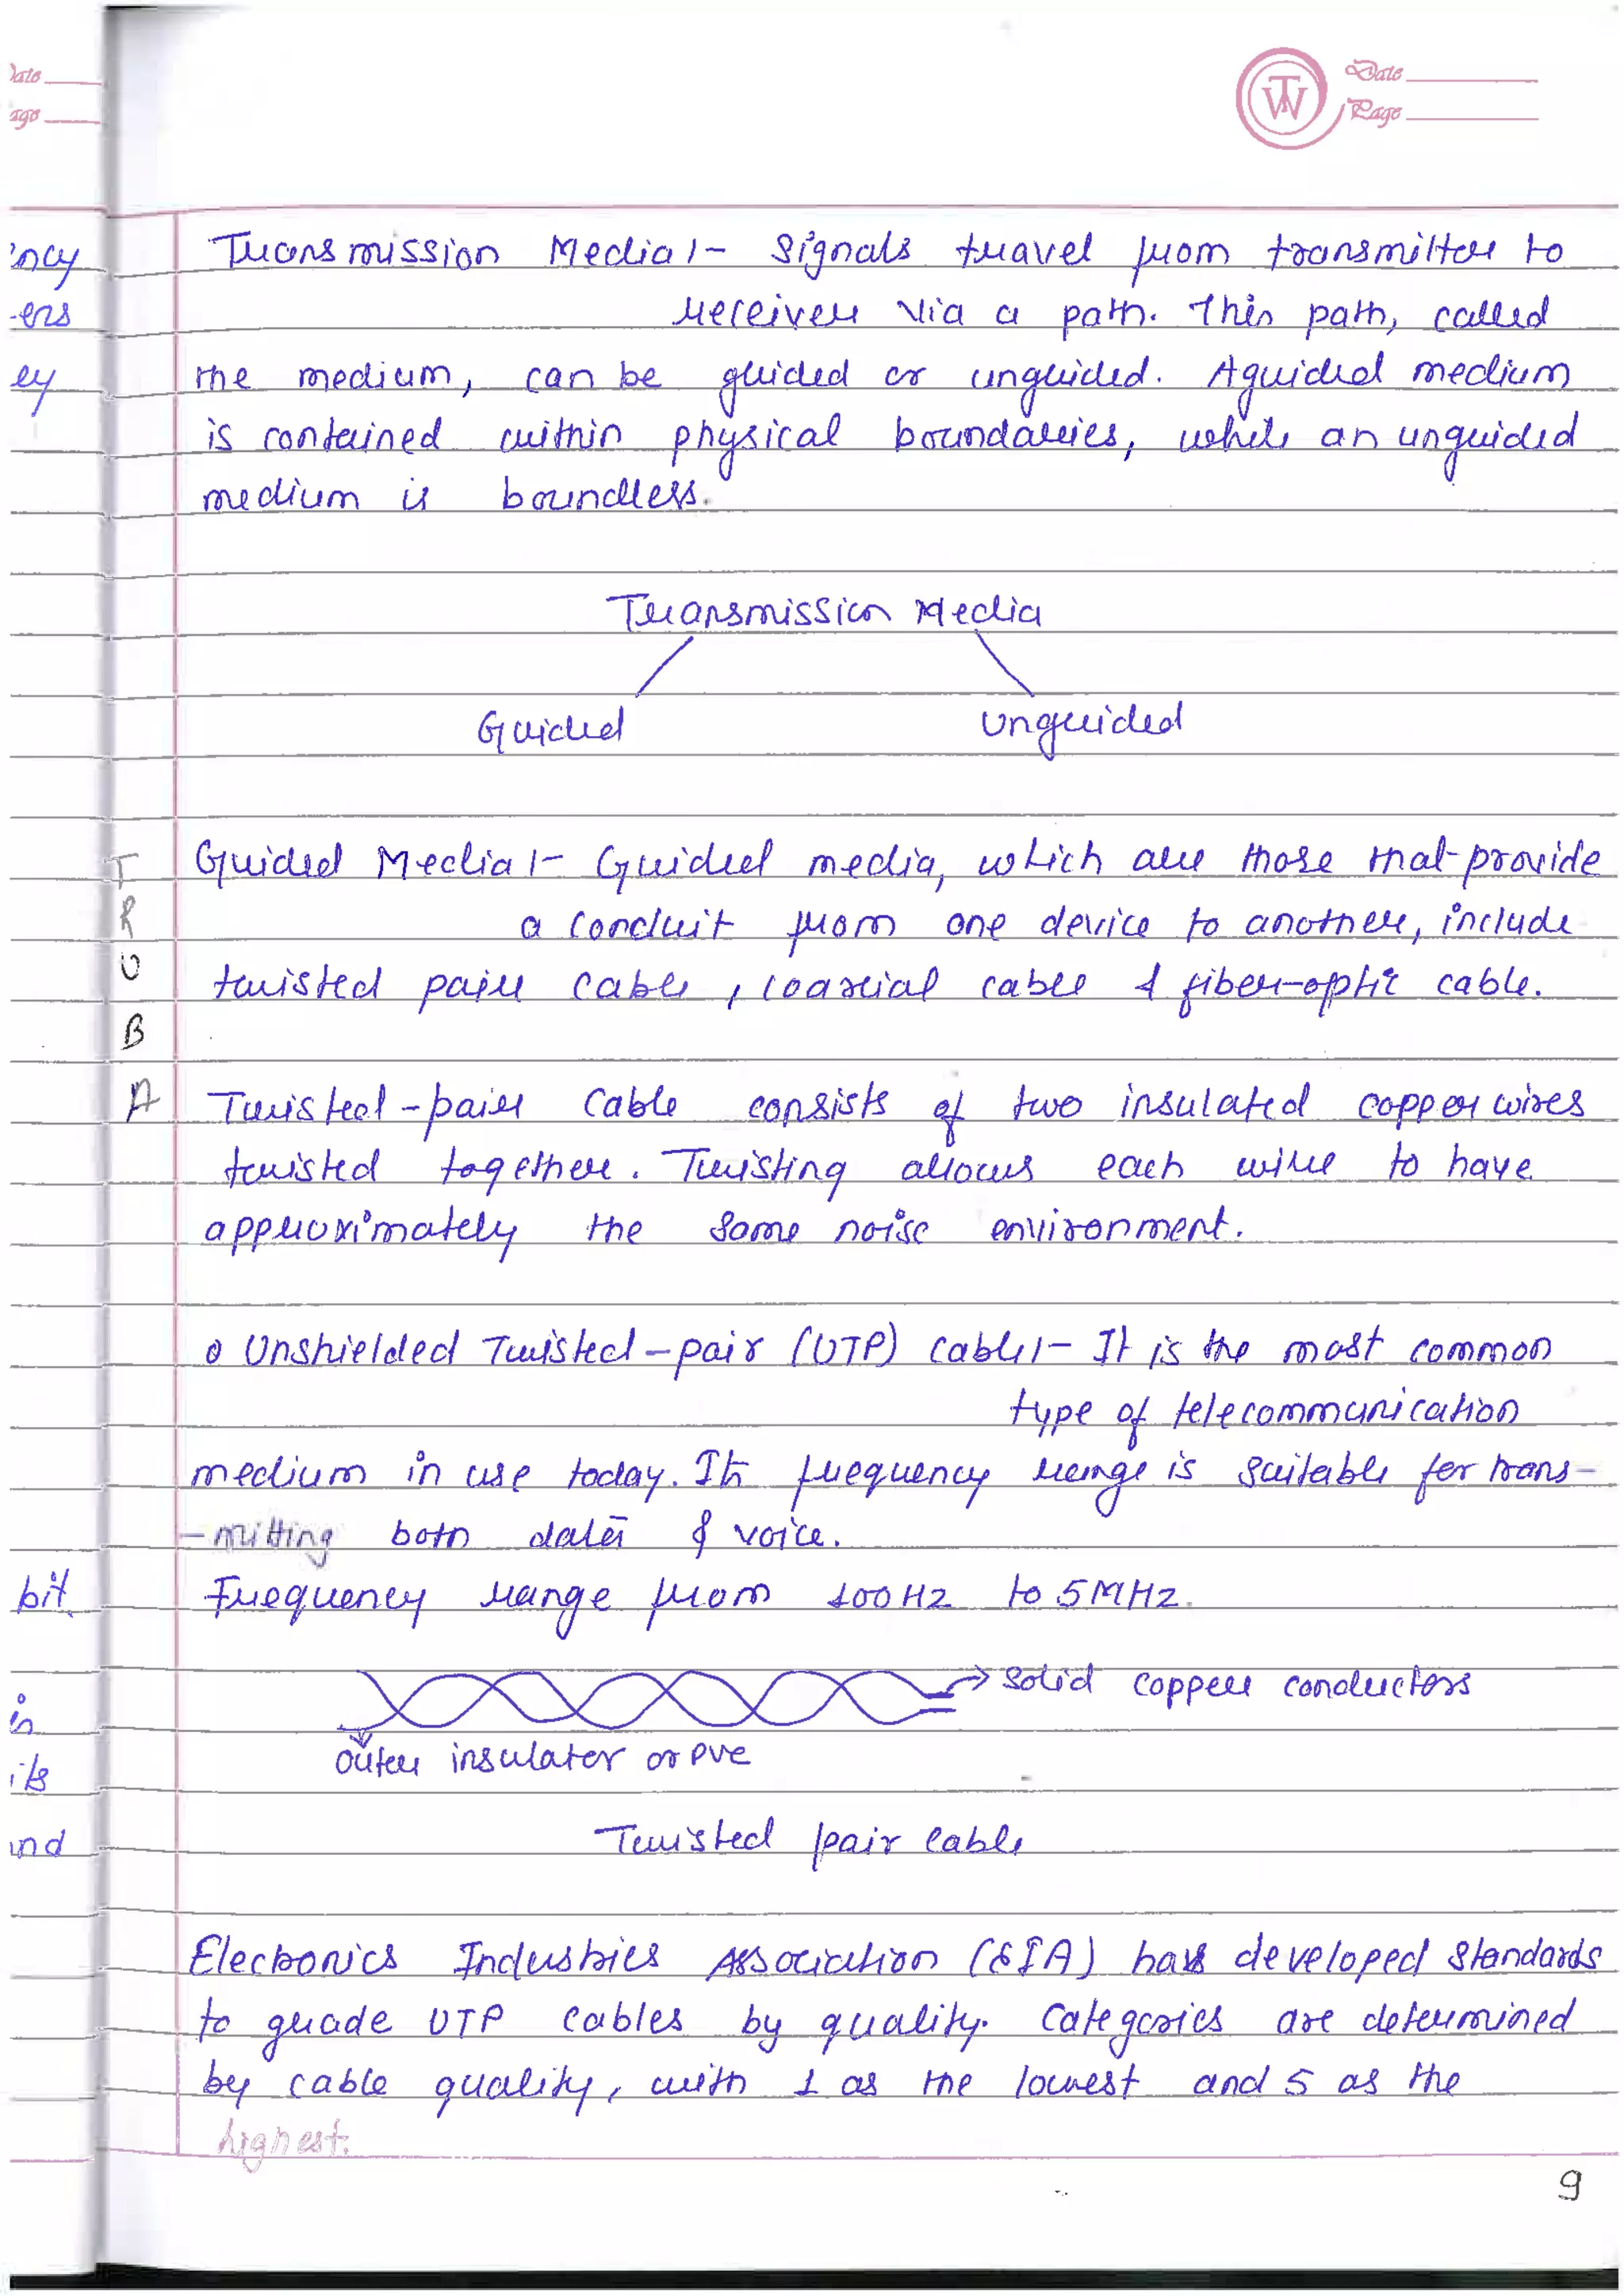 Date
Page
TW
Date
Page
ency
-ers
ey
Transmission Media :- Signals travel from transmitter to
receiver via a path. This path, called
the medium, can be guided or unguided. A guided medium
is contained within physical boundaries, while an unguided
medium is boundless.
Transmission Media
Guided Unguided
Guided Media :- Guided media, which are those that provide
a conduit from one device to another, include
twisted pair cable, coaxial cable & fiber-optic cable.
T
R
U
B
A
Twisted-pair cable consists of two insulated copper wires
twisted together. Twisting allows each wire to have
approximately the same noise environment.
o Unshielded Twisted-pair (UTP) cable :- It is the most common
type of telecommunication
medium in use today. Its frequency range is suitable for trans-
-mitting both data & voice.
bit.
Frequency range from 100 Hz to 5 MHz.
in
its
and
→ Solid copper conductors
outer insulator or PVC
Twisted pair cable
Electronics Industries Association (EIA) has developed standards
to grade UTP cables by quality. Categories are determined
by cable quality, with 1 as the lowest and 5 as the
highest.
9